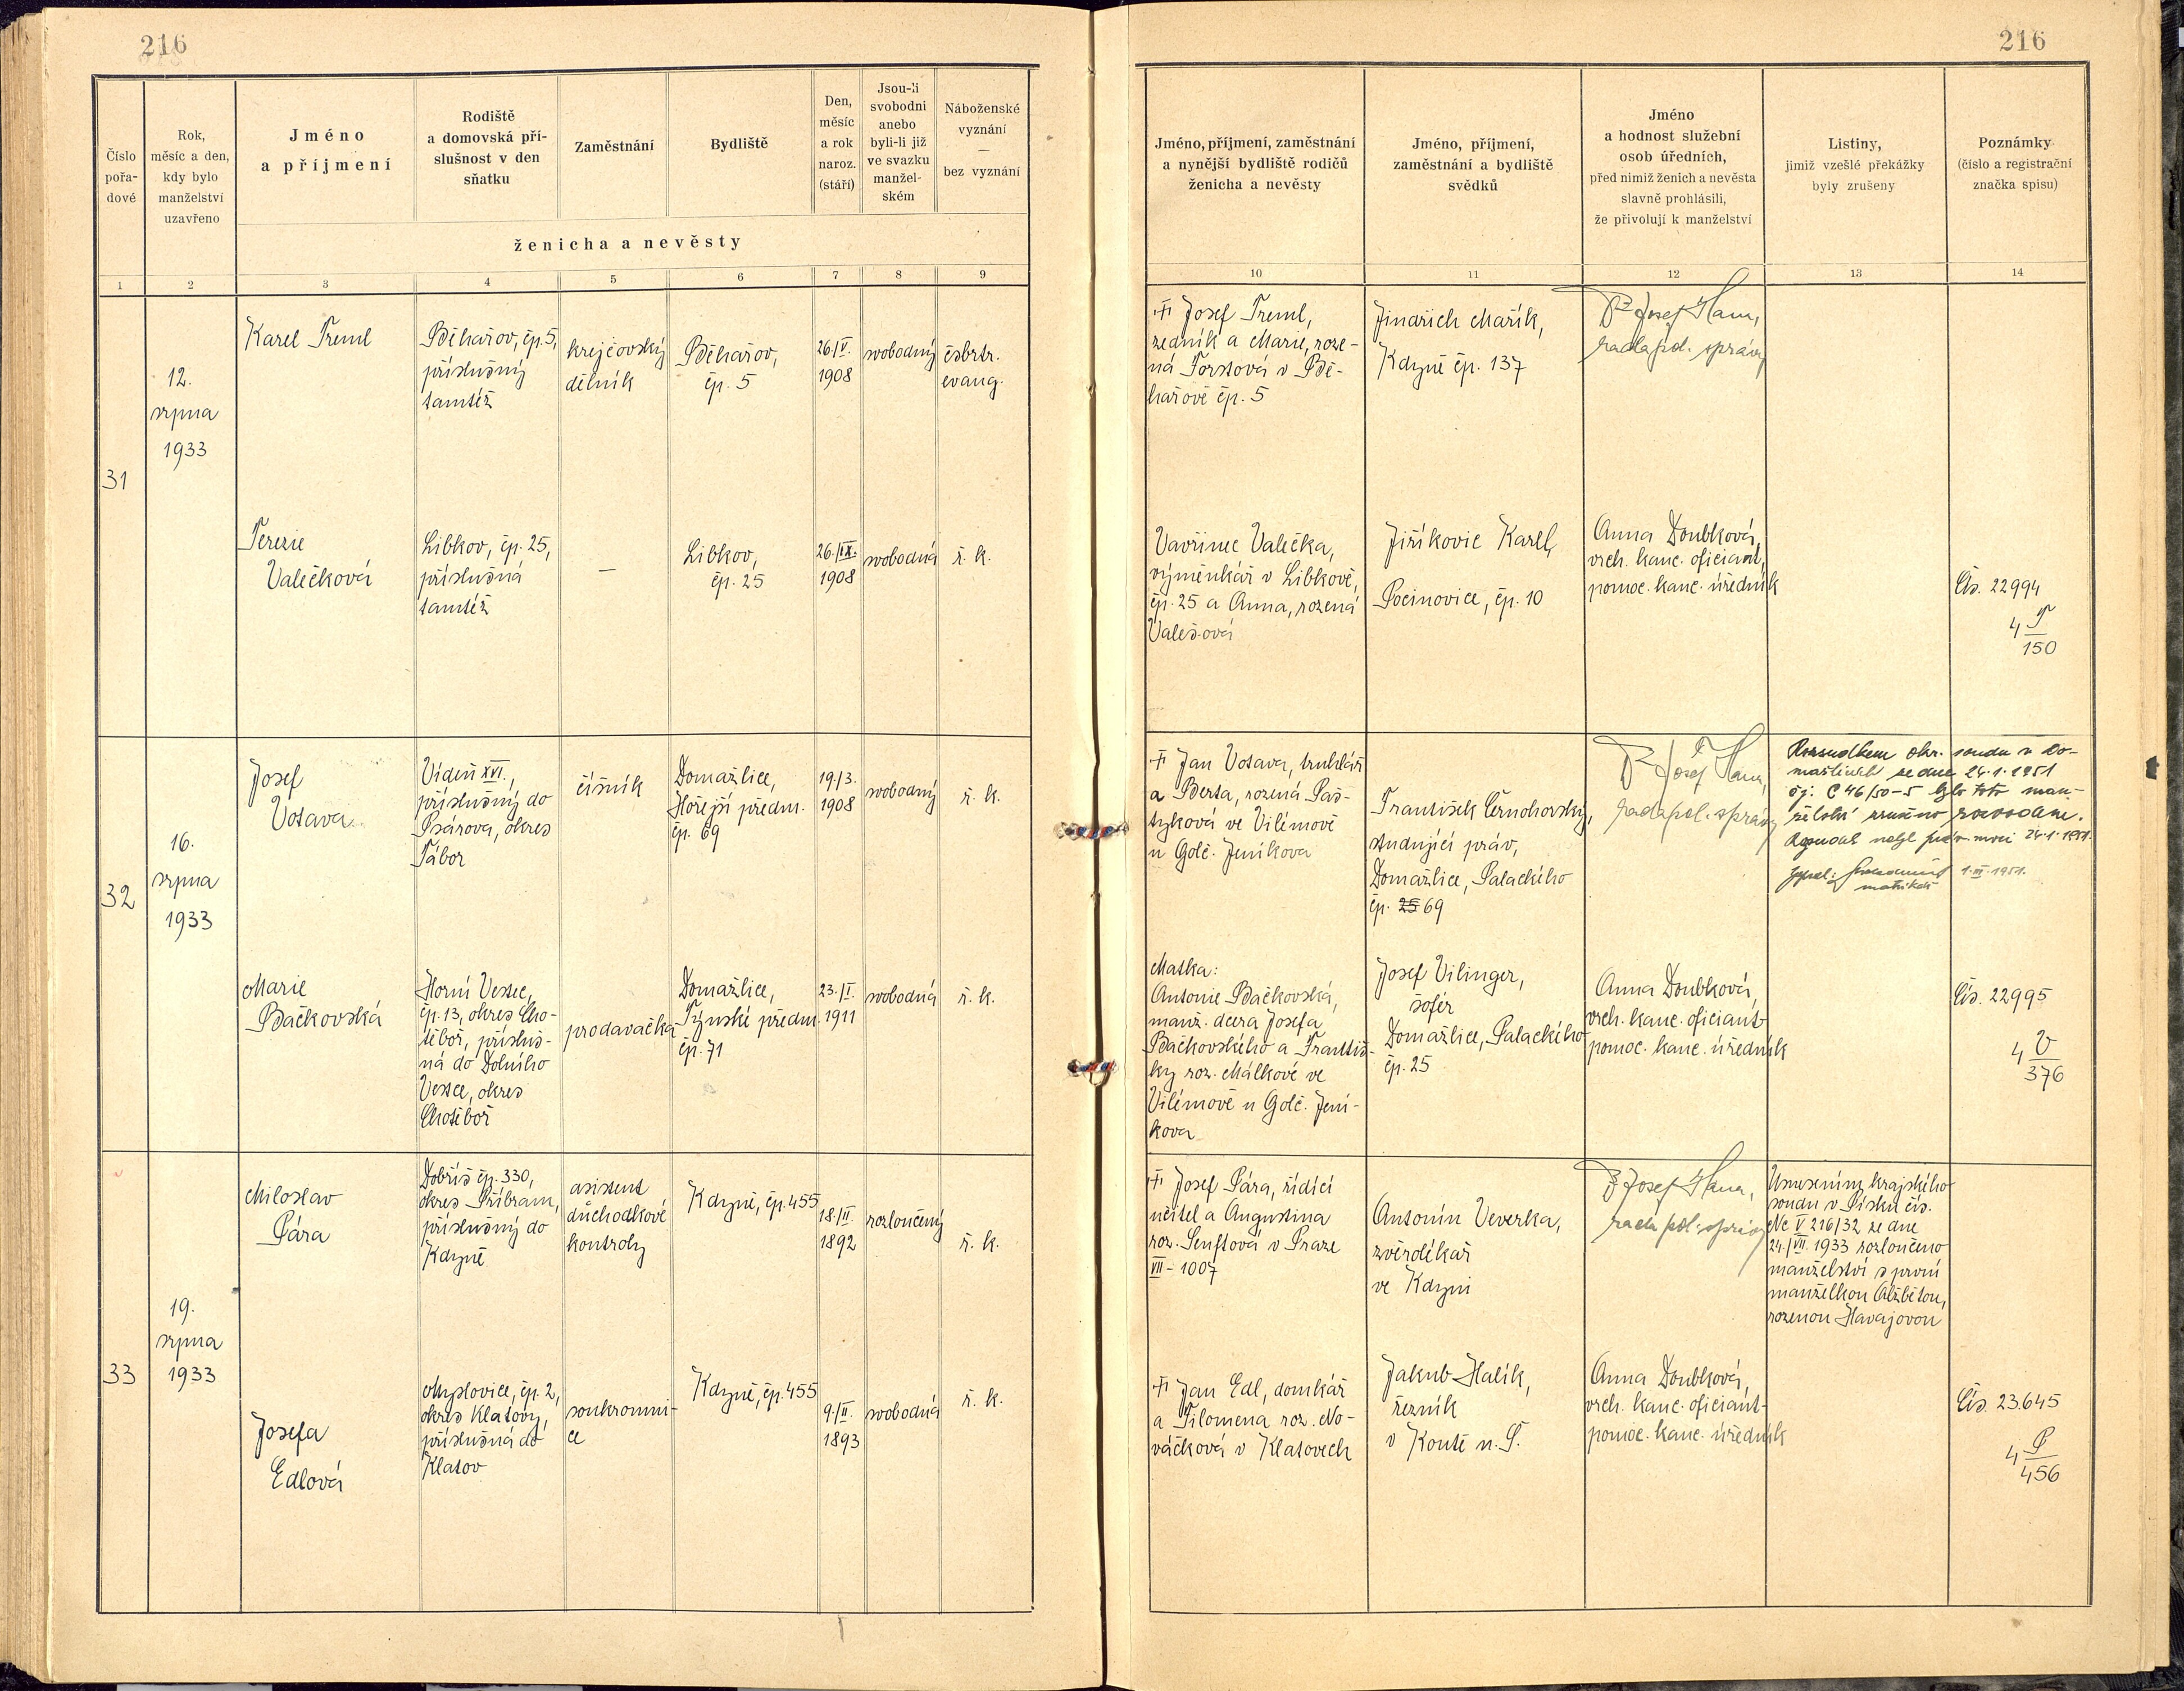 216
216
Číslo
pořa-
dové
Rok,
měsíc a den,
kdy bylo
manželství
uzavřeno
Jméno
a příjmení
Rodiště
a domovská pří-
slušnost v den
sňatku
Zaměstnání
Bydliště
Den,
měsíc
a rok
naroz.
(stáří)
Jsou-li
svobodni
anebo
byli-li již
ve svazku
manžel-
ském
Náboženské
vyznání
—
bez vyznání
ženicha a nevěsty
Jméno, příjmení, zaměstnání
a nynější bydliště rodičů
ženicha a nevěsty
Jméno, příjmení,
zaměstnání a bydliště
svědků
Jméno
a hodnost služební
osob úředních,
před nimiž ženich a nevěsta
slavně prohlásili,
že přivolují k manželství
Listiny,
jimiž vzešlé překážky
byly zrušeny
Poznámky
(číslo a registrační
značka spisu)
1 2 3 4 5 6 7 8 9 10 11 12 13 14
31
12.
srpna
1933
Karel Treml
Běhařov, čp. 5,
příslušný
tamtéž
krejčovský
dělník
Běhařov,
čp. 5
26./V.
1908
svobodný
čsbrtr.
evang.
+ Josef Treml,
zedník a Marie, roze-
ná Forstová v Bě-
hařově čp. 5
Jindřich Mařík,
Kdyně čp. 137
Josef Hana,
rada pol. správy
Terezie
Valečková
Libkov, čp. 25,
příslušná
tamtéž
—
Libkov,
čp. 25
26./IX.
1908
svobodná
ř. k.
Vavřinec Valečka,
výměnkář v Libkově,
čp. 25 a Anna, rozená
Valešová
Jiříkovic Karel,
Pocinovice, čp. 10
Anna Doubková,
vrch. kanc. oficiant,
pomoc. kanc. úředník
Čís. 22994
4 T
150
32
16.
srpna
1933
Josef
Votava
Vídeň XVI.,
příslušný do
Psárova, okres
Tábor
číšník
Domažlice,
Hořejší předm.
čp. 69
19./3.
1908
svobodný
ř. k.
+ Jan Votava, truhlář
a Berta, rozená Paš-
tyková ve Vilémově
u Golč. Jeníkova
František Černohovský,
studující práv,
Domažlice, Palackého
čp. 25 69
Josef Hana,
rada pol. správy
Rozsudkem okr. soudu v Do-
mažlicích ze dne 24.1.1951
čj: C 46/50-5 bylo toto man-
želství zrušeno rozvodem.
Rozsudek nabyl práv. moci 24.1.1951.
Zapsal:
matrikář
1.III.1951.
Marie
Bačkovská
Horní Vestec,
čp. 13, okres Cho-
těboř, přísluš-
ná do Dolního
Vestce, okres
Chotěboř
prodavačka
Domažlice,
Týnské předm.
čp. 71
23./I.
1911
svobodná
ř. k.
Matka:
Antonie Bačkovská,
manž. dcera Josefa
Bačkovského a Františ-
ky roz. Málkové ve
Vilémově u Golč. Jení-
kova
Josef Vilinger,
šofér
Domažlice, Palackého
čp. 25
Anna Doubková,
vrch. kanc. oficiant
pomoc. kanc. úředník
Čís. 22995
4 V
376
33
19.
srpna
1933
Miloslav
Pára
Dobříš čp. 330,
okres Příbram,
příslušný do
Kdyně
asistent
důchodkové
kontroly
Kdyně, čp. 455
18./II.
1892
rozloučený
ř. k.
+ Josef Pára, řídící
učitel a Augustina
roz. Senftová v Praze
VII - 1007
Antonín Veverka,
zvěrolékař
ve Kdyni
Josef Hana,
rada pol. správy
Usnesením krajského
soudu v Písku čís.
Nc V 216/32 ze dne
24./VII. 1933 rozloučeno
manželství s první
manželkou Alžbětou,
rozenou Havajovou
Josefa
Edlová
Myslovice, čp. 2,
okres Klatovy,
příslušná do
Klatov
soukromni-
ce
Kdyně, čp. 455
9./II.
1893
svobodná
ř. k.
+ Jan Edl, domkář
a Filomena roz. No-
váčková v Klatovech
Jakub Halík,
řezník
v Koutě n. Š.
Anna Doubková,
vrch. kanc. oficiant-
pomoc. kanc. úředník
Čís. 23.645
4 P
456